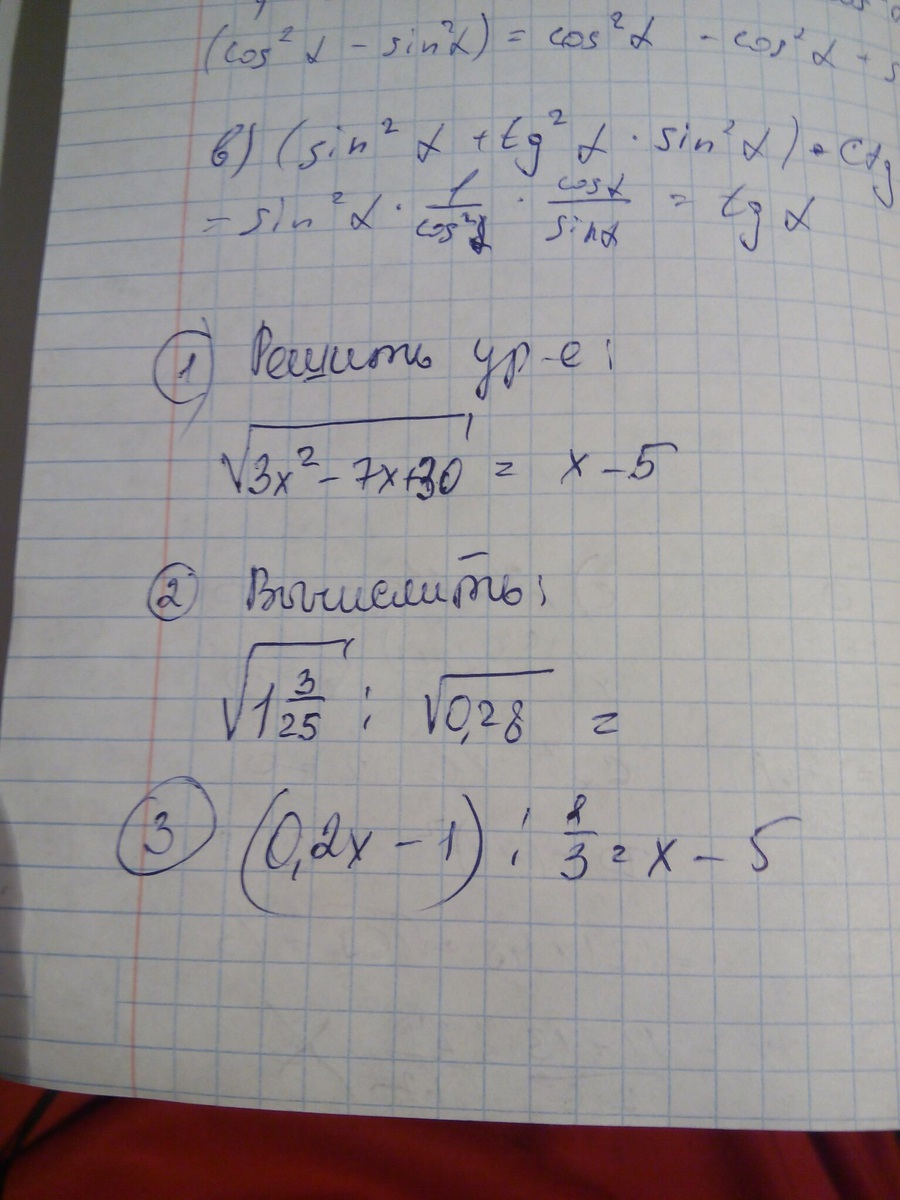 (cos² α - sin² α) = cos² α - cos² α + s
в) (sin² α + tg² α · sin² α) · ctg
= sin² α · 1/cos² α · cos α/sin α = tg α
① Решить ур-е:
√(3x² - 7x + 30) = x - 5
② Вычислить:
√(1 3/25) : √0,28 =
③ (0,2x - 1) : 2/3 = x - 5